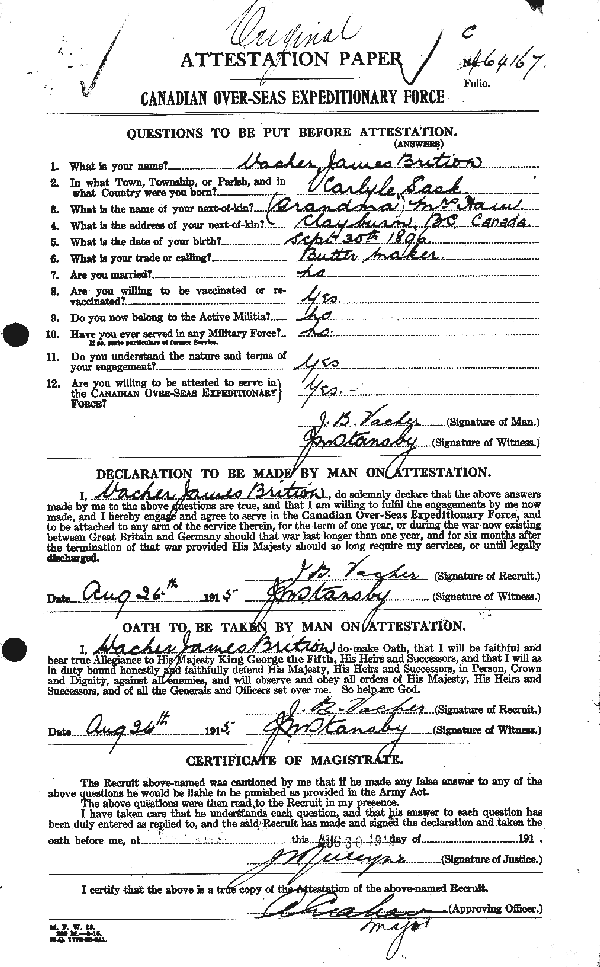 Original
ATTESTATION PAPER
C
464167
Folio.
CANADIAN OVER-SEAS EXPEDITIONARY FORCE
QUESTIONS TO BE PUT BEFORE ATTESTATION.
(ANSWERS)
1. What is your name? Vacher, James Brition
2. In what Town, Township, or Parish, and in
what Country were you born? Carlyle, Sask
3. What is the name of your next-of-kin? (Grandma) Mrs
4. What is the address of your next-of-kin? Clayburn, BC Canada
5. What is the date of your birth? Sept 20th 1896
6. What is your trade or calling? Butter maker
7. Are you married? no
8. Are you willing to be vaccinated or re-
vaccinated? Yes
9. Do you now belong to the Active Militia? no
10. Have you ever served in any Military Force? no
If so, state particulars of former Service.
11. Do you understand the nature and terms of
your engagement? Yes
12. Are you willing to be attested to serve in
the CANADIAN OVER-SEAS EXPEDITIONARY
FORCE? Yes.-
J. B. Vacher (Signature of Man.)
JM Stansby (Signature of Witness.)
DECLARATION TO BE MADE BY MAN ON ATTESTATION.
I, Vacher James Brition, do solemnly declare that the above answers
made by me to the above questions are true, and that I am willing to fulfil the engagements by me now
made, and I hereby engage and agree to serve in the Canadian Over-Seas Expeditionary Force, and
to be attached to any arm of the service therein, for the term of one year, or during the war now existing
between Great Britain and Germany should that war last longer than one year, and for six months after
the termination of that war provided His Majesty should so long require my services, or until legally
discharged.
J. B. Vacher (Signature of Recruit.)
Date Aug 26th 1915 JM Stansby (Signature of Witness.)
OATH TO BE TAKEN BY MAN ON ATTESTATION.
I, Vacher James Brition, do make Oath, that I will be faithful and
bear true Allegiance to His Majesty King George the Fifth, His Heirs and Successors, and that I will as
in duty bound honestly and faithfully defend His Majesty, His Heirs and Successors, in Person, Crown
and Dignity, against all enemies, and will observe and obey all orders of His Majesty, His Heirs and
Successors, and of all the Generals and Officers set over me. So help me God.
J. B. Vacher (Signature of Recruit.)
Date Aug 26th 1915 JM Stansby (Signature of Witness.)
CERTIFICATE OF MAGISTRATE.
The Recruit above-named was cautioned by me that if he made any false answer to any of the
above questions he would be liable to be punished as provided in the Army Act.
The above questions were then read to the Recruit in my presence.
I have taken care that he understands each question, and that his answer to each question has
been duly entered as replied to, and the said Recruit has made and signed the declaration and taken the
oath before me, at this AUG 30 1915 day of 191 .
(Signature of Justice.)
I certify that the above is a true copy of the Attestation of the above-named Recruit.
(Approving Officer.)
Major
M. F. W. 23.